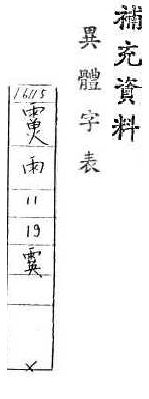 補充資料
異體字表
16115
雨
11
19
×